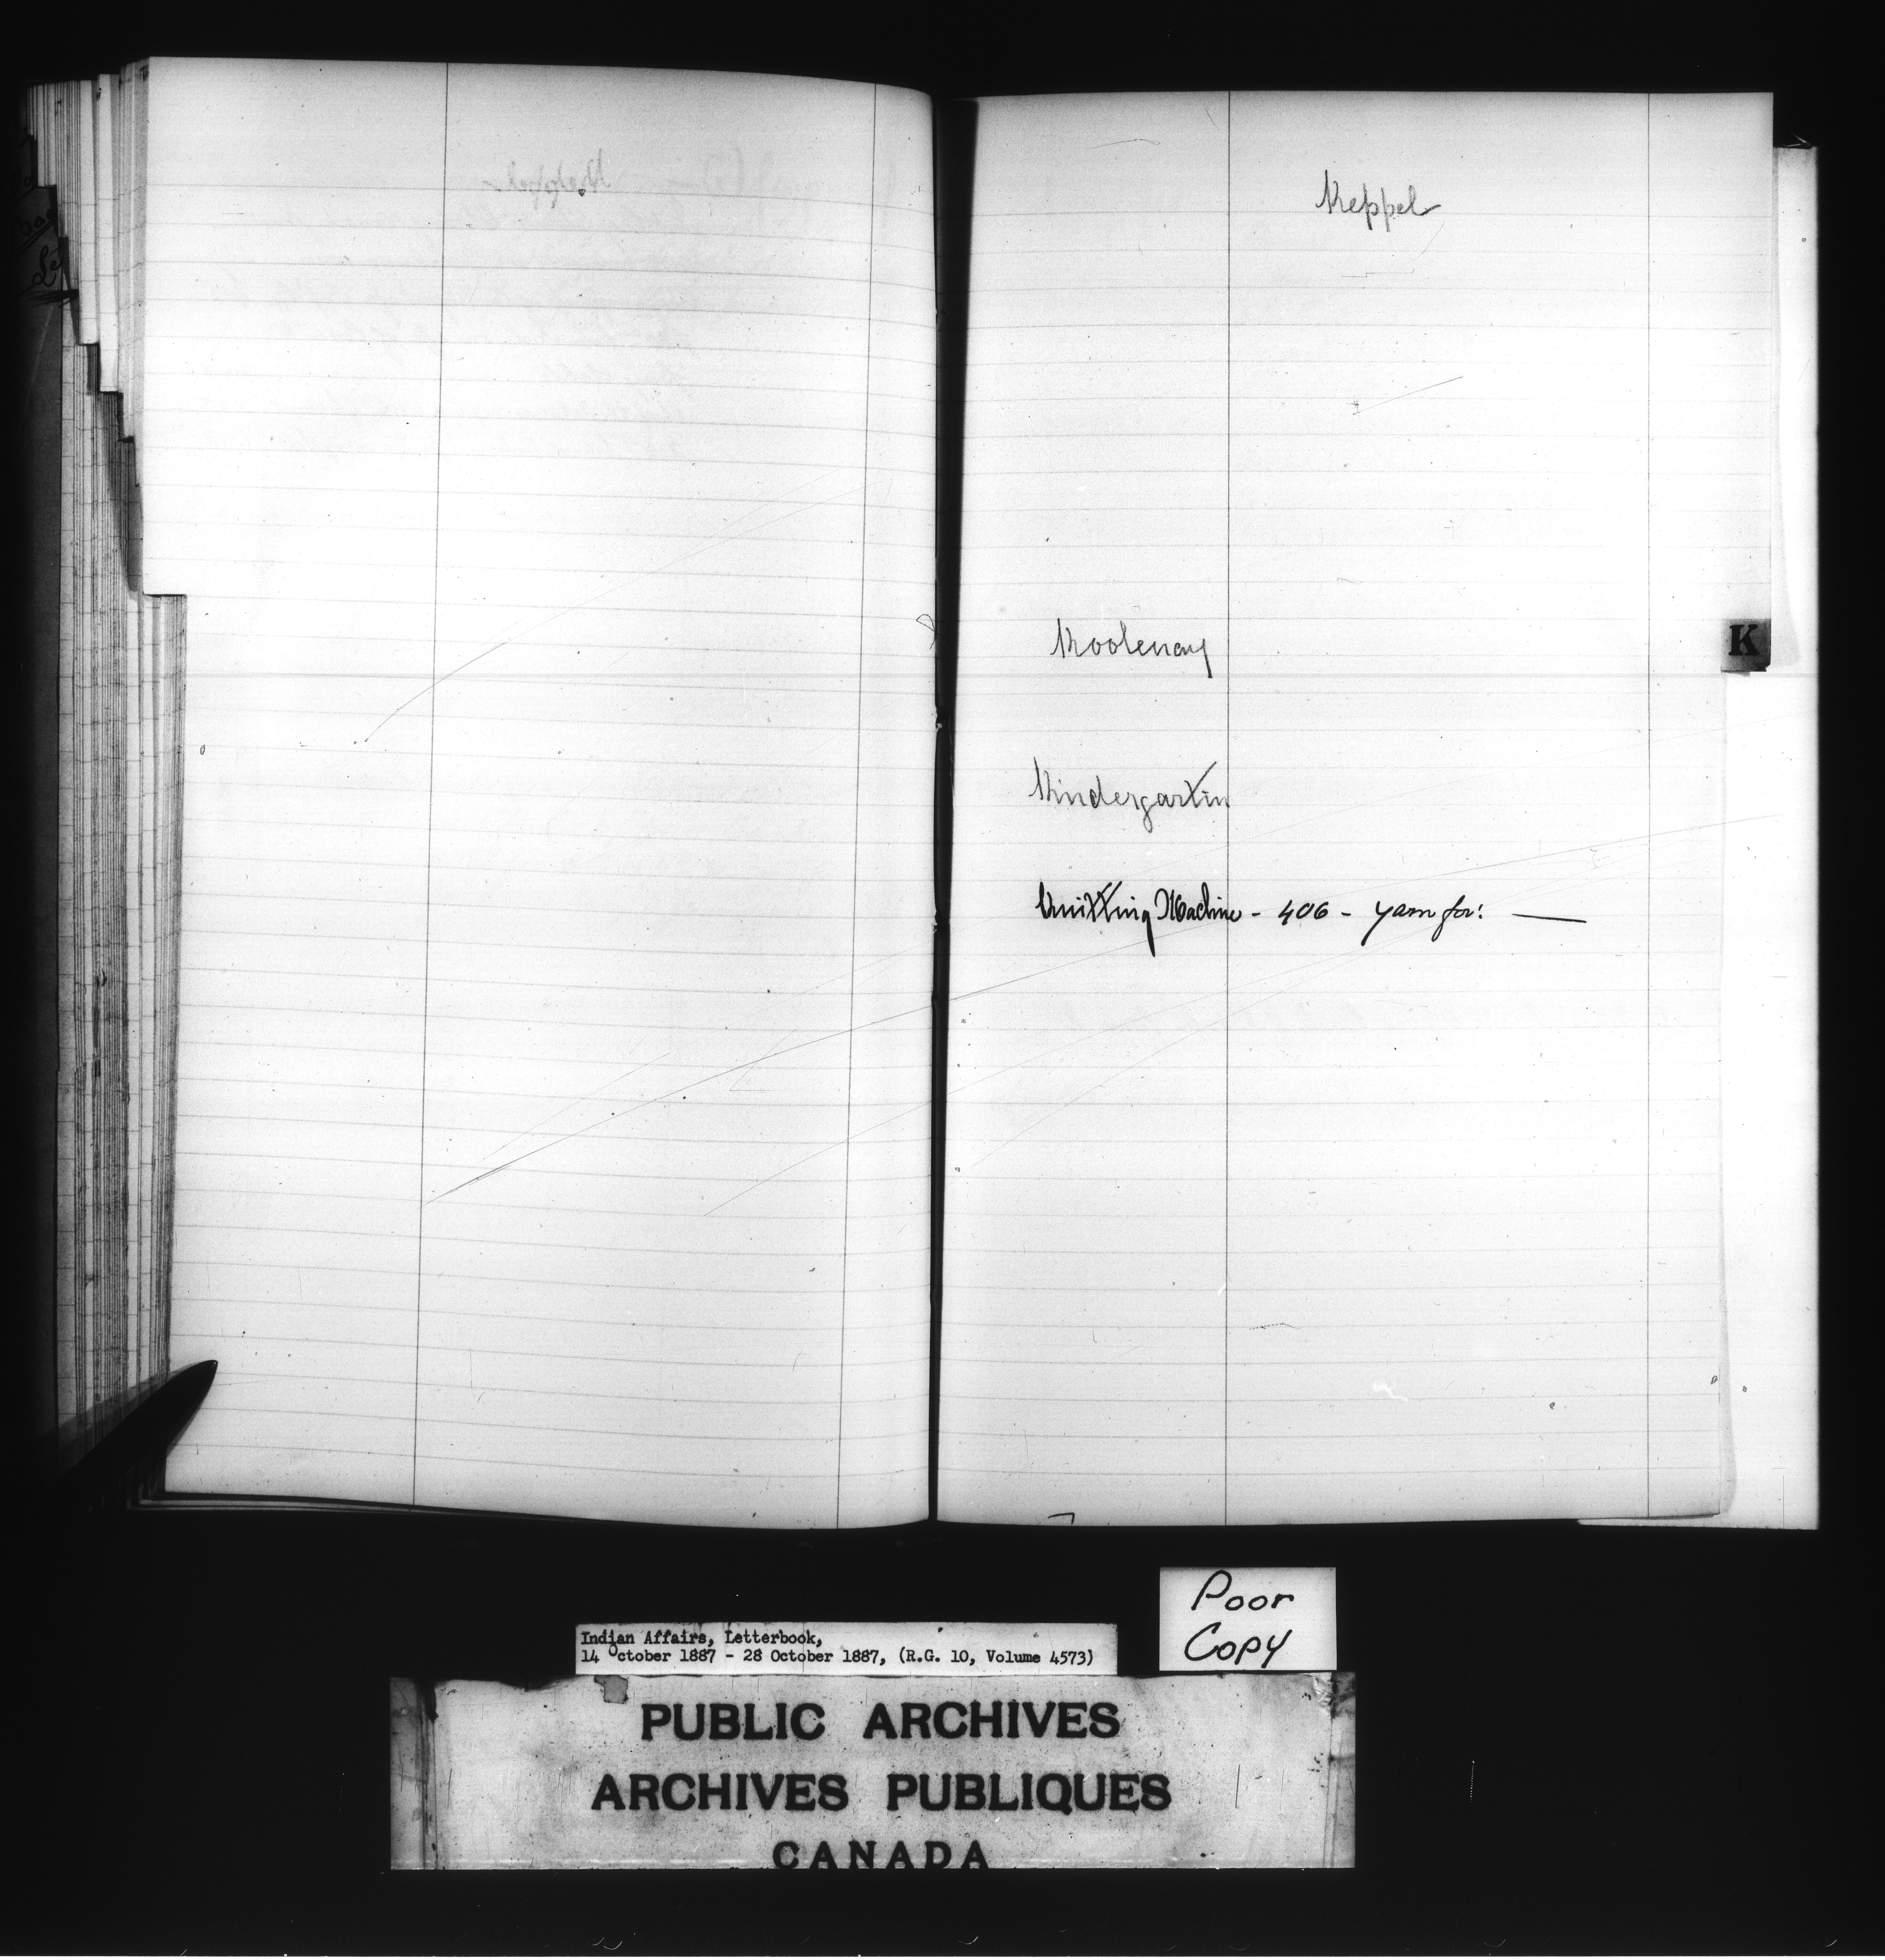 Keppel
Kootenay
K
Kindergartin
Knitting Machine - 406 - yarn for: —
Poor
Copy
Indian Affairs, Letterbook,
14 October 1887 - 28 October 1887, (R.G. 10, Volume 4573)
PUBLIC ARCHIVES
ARCHIVES PUBLIQUES
CANADA